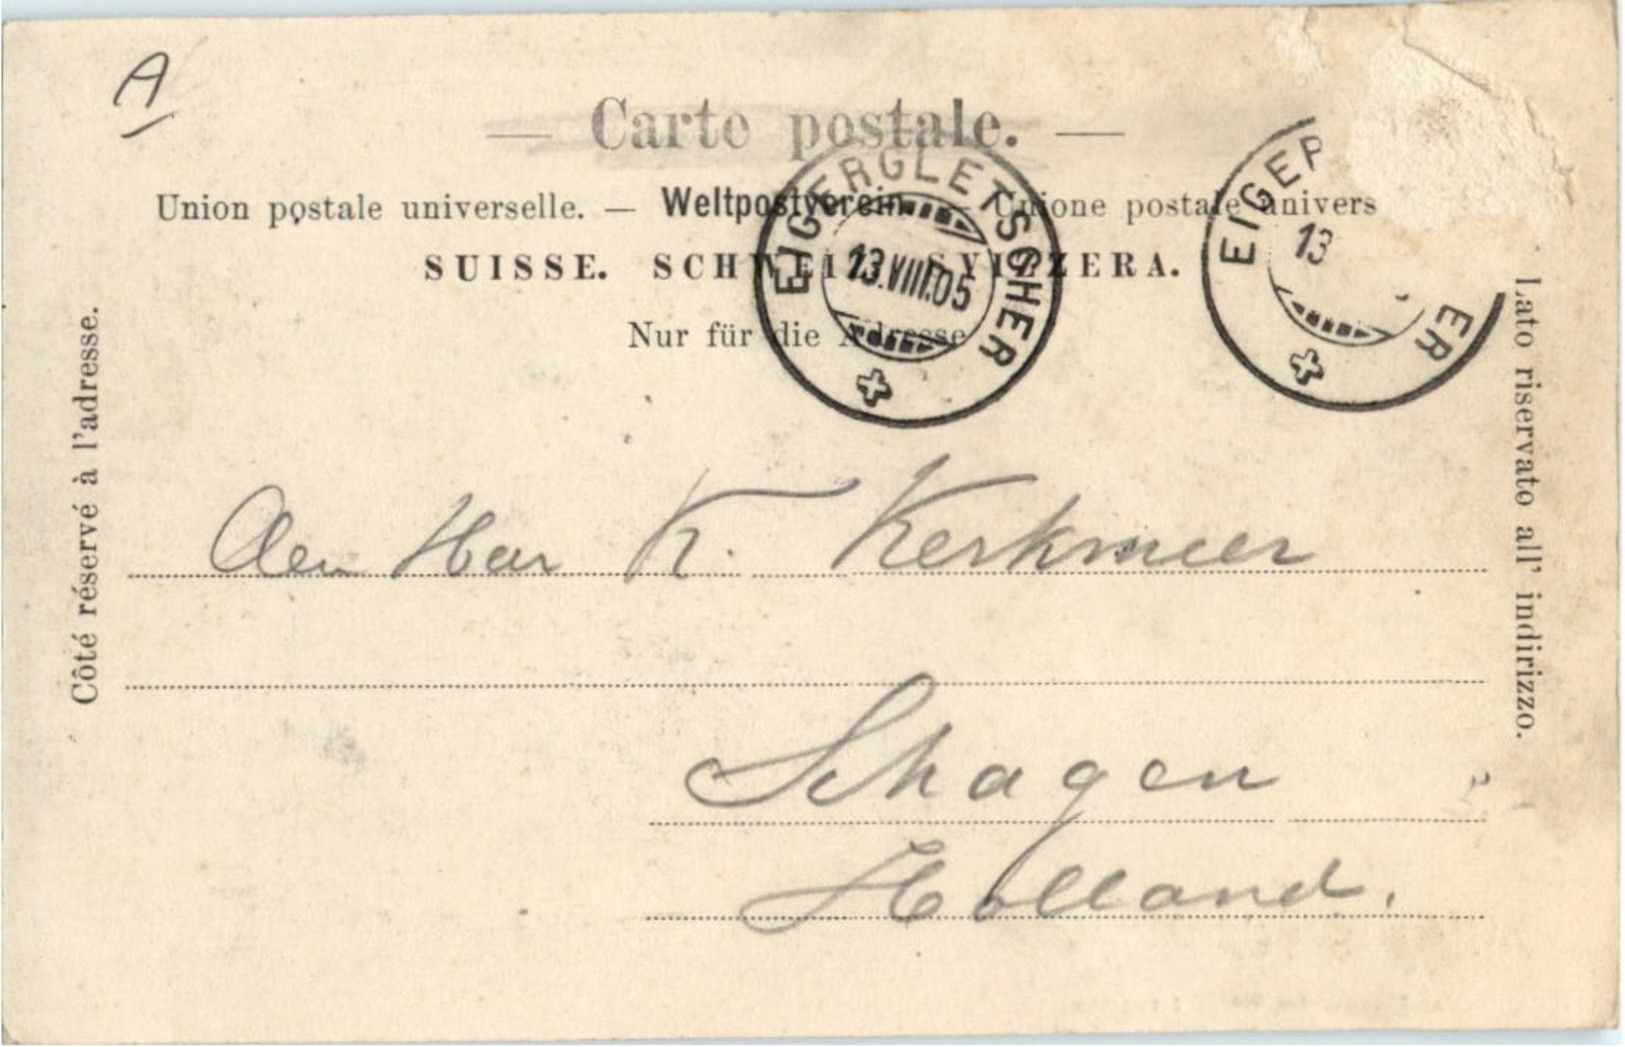 A
— Carte postale. —
Union postale universelle. — Weltpostverein — Unione postale univers
SUISSE. SCHWEIZ. SVIZZERA.
Nur für die Adresse
EIGERGLETSCHER
13.VIII.05
EIGER ER
13
Côté réservé à l'adresse.
Lato riservato all' indirizzo.
Den Heer K. Kerkmeer
Schagen
Holland.